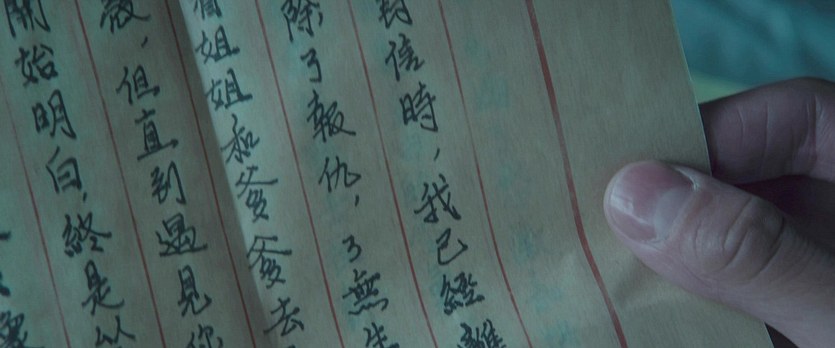 封信時，我已經離
除了報仇，了無生
姐姐和爹爹去
設，但直到遇見你
開始明白，終是以